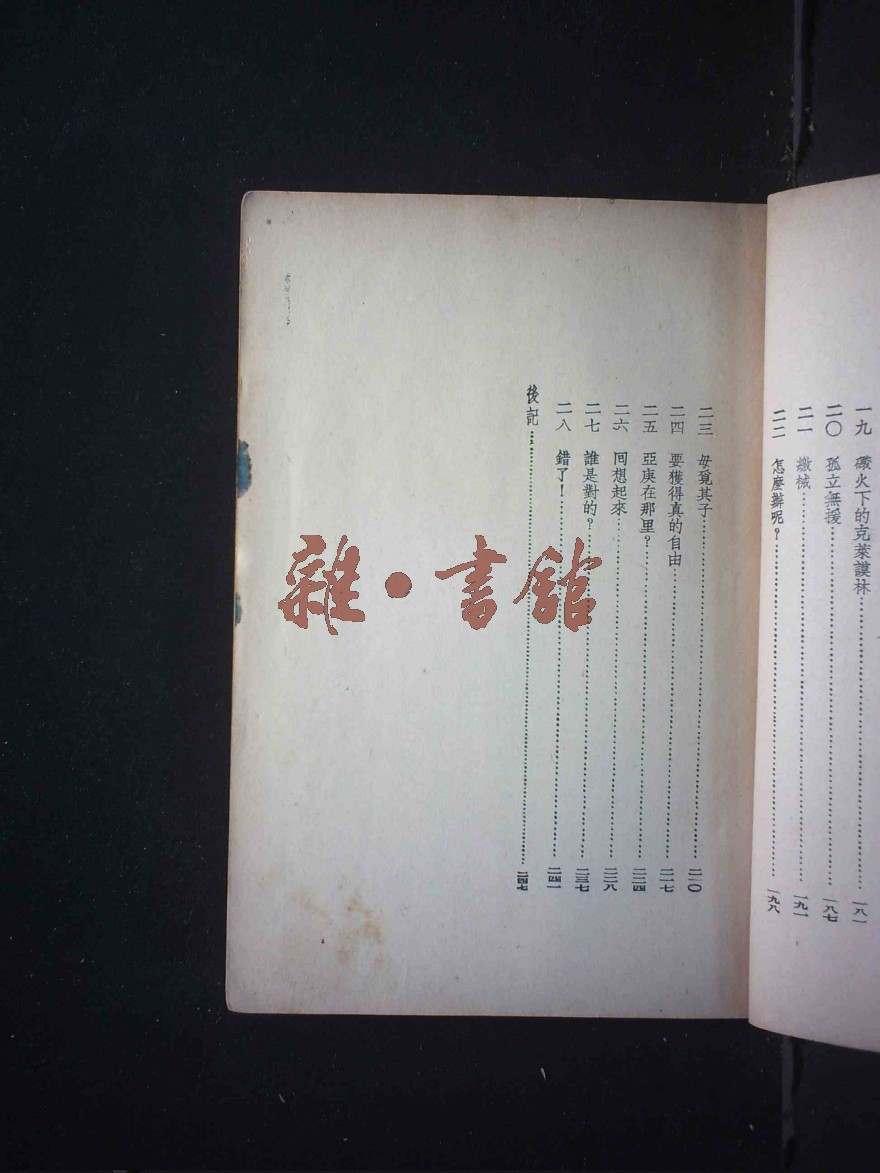 一九 礮火下的克萊謨林……一八一
二〇 孤立無援……一八七
二一 繳械……一九一
二二 怎麼辦呢？……一九八
二三 母覓其子……二一〇
二四 要獲得真的自由……二一七
二五 亞庚在那里？……二二四
二六 回想起來……二二八
二七 誰是對的？……二三七
二八 錯了！……二四一
後記……二四七
雜·書館